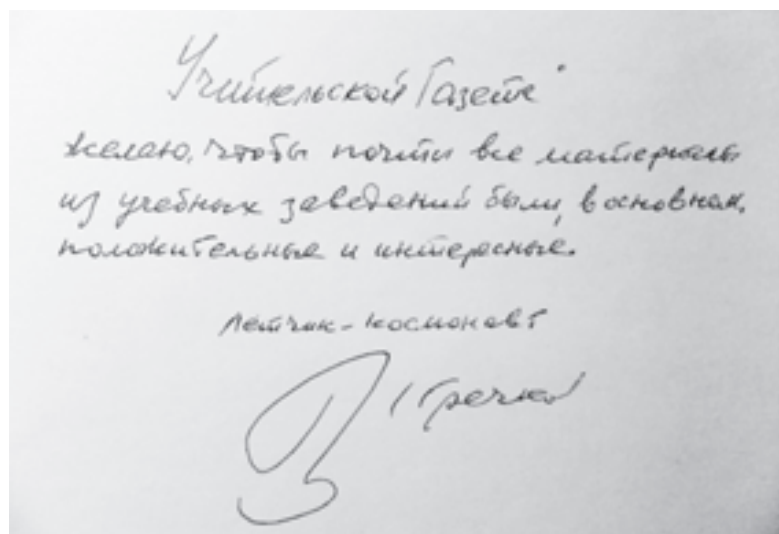 Учительской Газете"
желаю, чтобы почти все материалы
из учебных заведений были, в основном,
положительные и интересные.
Летчик-космонавт
(Гречко)